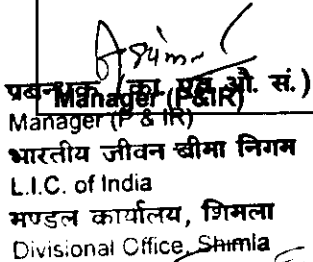 प्रबन्धक (का. एवं औ. सं.)
Manager (P&IR)
Manager (P & IR)
भारतीय जीवन बीमा निगम
L.I.C. of India
मण्डल कार्यालय, शिमला
Divisional Office, Shimla